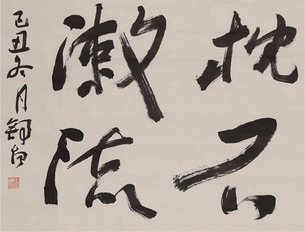 枕石
漱流
己丑冬月